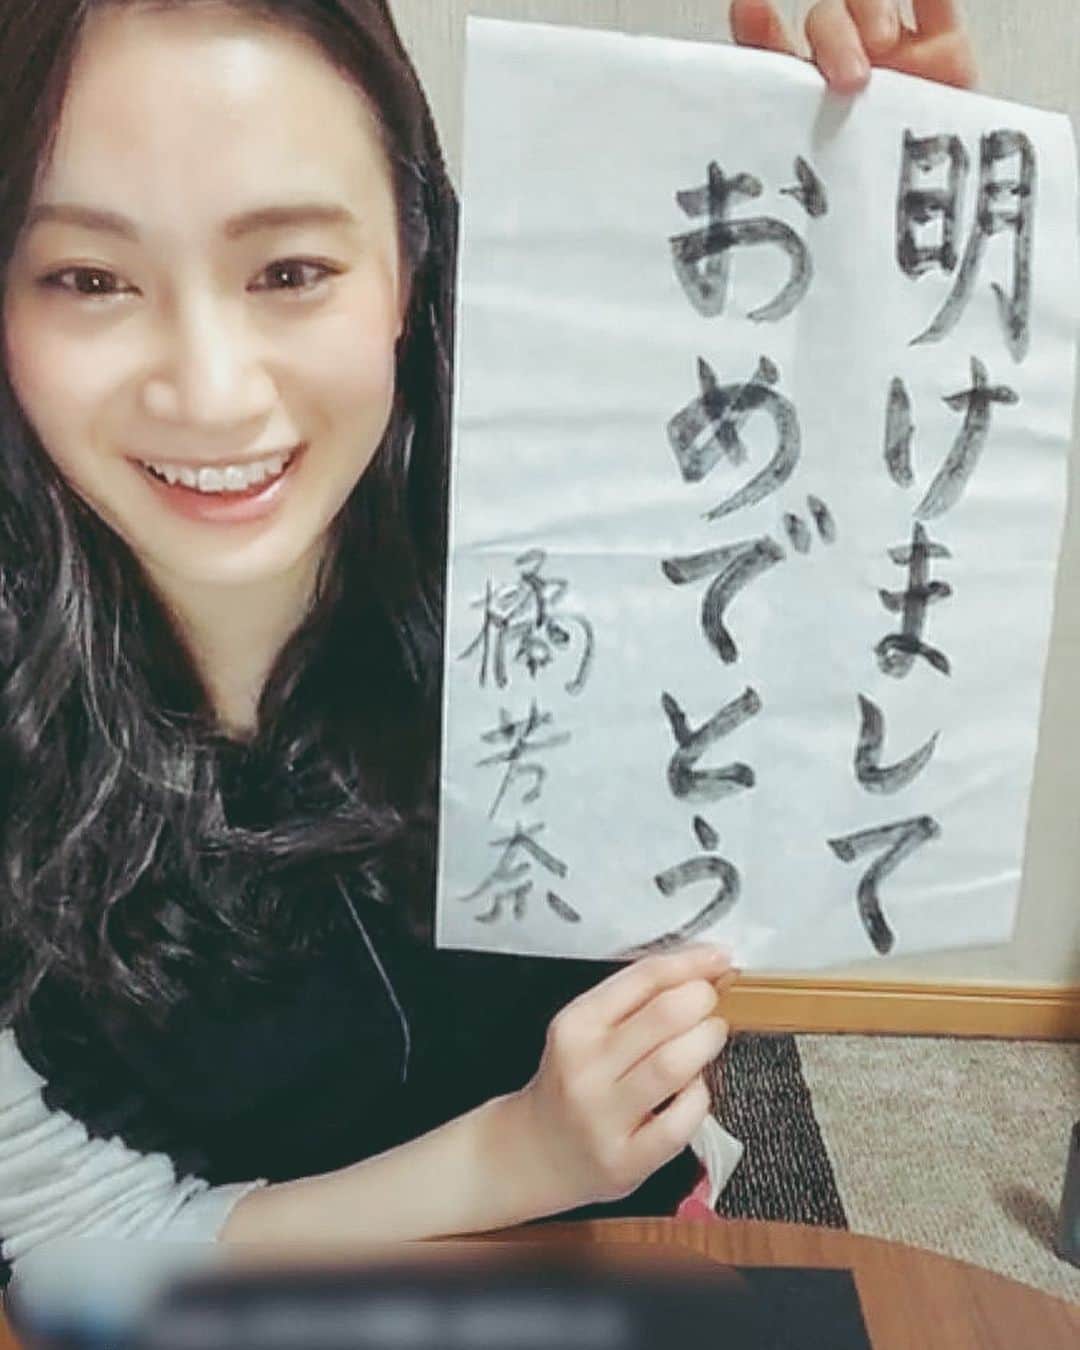 明けまして
おめでとう
橘芳奈